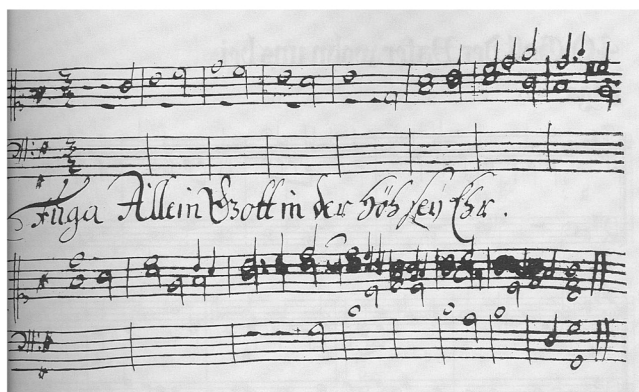 Fuga Allein Gott in der Höh sey Ehr.